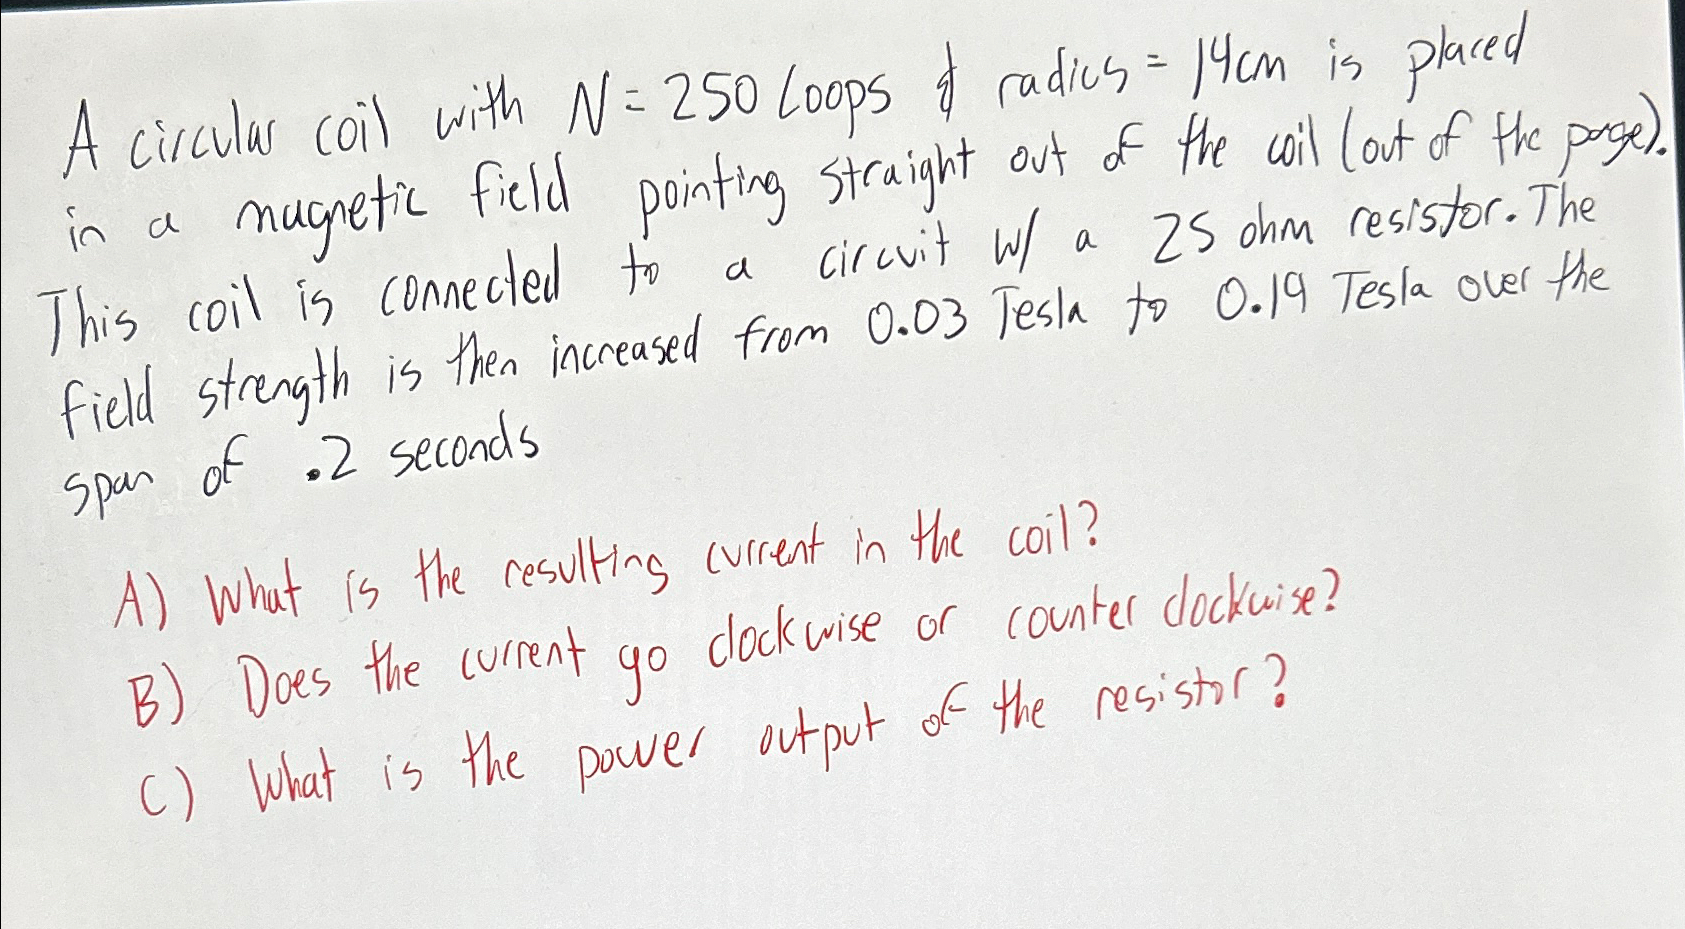 A circular coil with N = 250 Loops & radius = 14cm is placed
in a magnetic field pointing straight out of the coil (out of the page).
This coil is connected to a circuit w/ a 25 ohm resistor. The
field strength is then increased from 0.03 Tesla to 0.19 Tesla over the
span of .2 seconds
A) What is the resulting current in the coil?
B) Does the current go clockwise or counter clockwise?
C) What is the power output of the resistor?